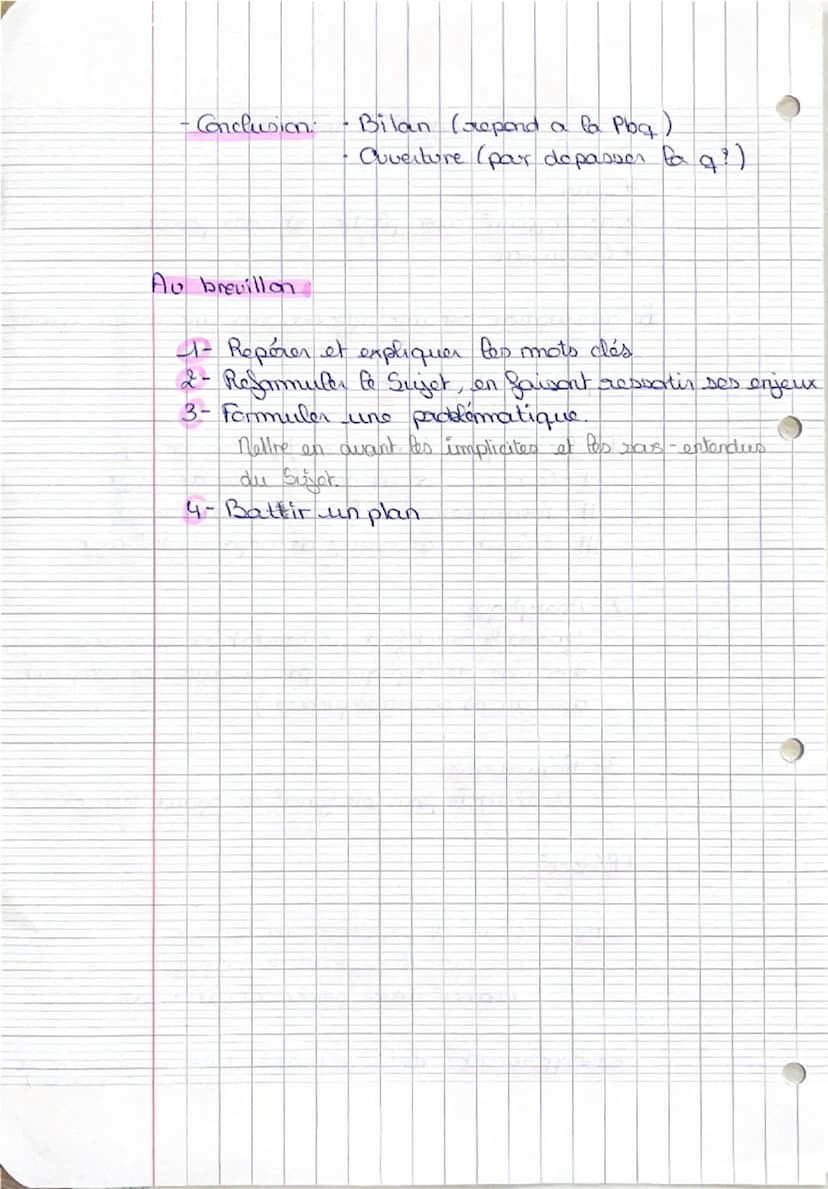 - Conclusion: · Bilan (repond a la Pbq)
· Ouverture (par depasser la q?)
Au brouillon
1- Repérer et expliquer les mots clés
2- Reformuler le Sujet, en faisant ressortir ses enjeux
3- Formuler une problématique.
Mettre en avant les implicites et les sas-entendus
du Sujet.
4- Battir un plan